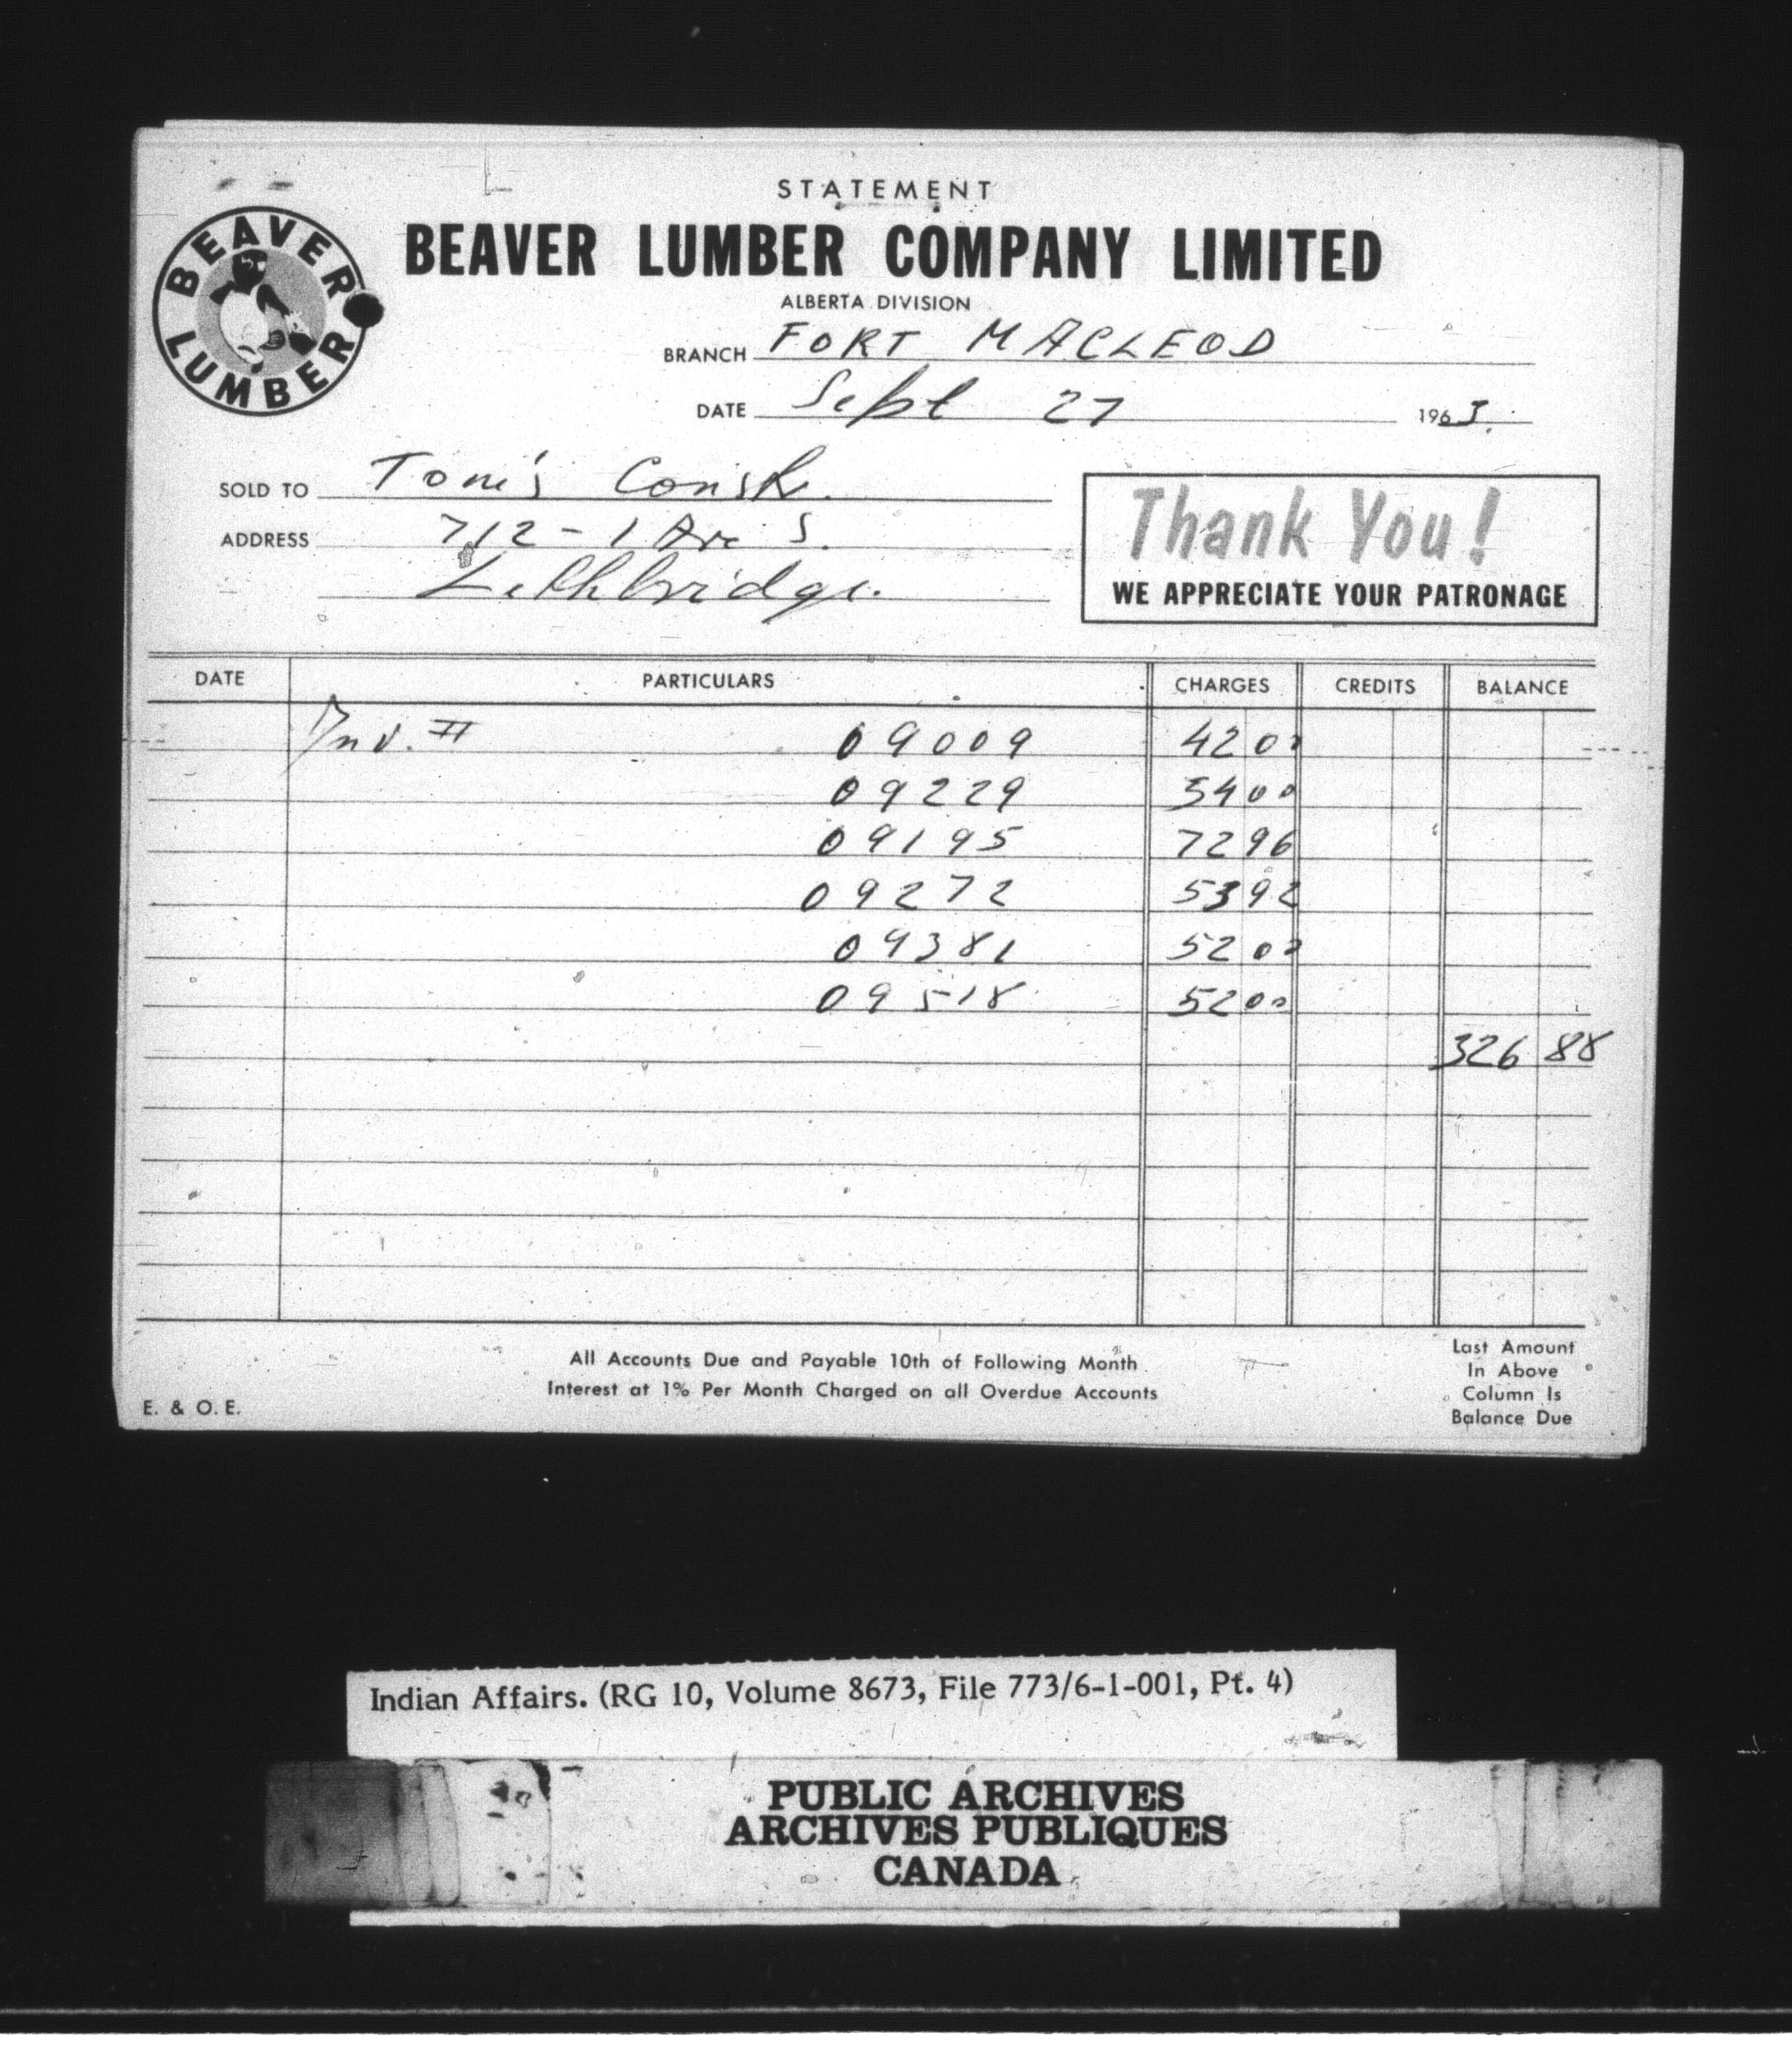 STATEMENT
BEAVER LUMBER
BEAVER LUMBER COMPANY LIMITED
ALBERTA DIVISION
BRANCH FORT MACLEOD
DATE Sept 27 1963.
SOLD TO Tom's Constr.
ADDRESS 712 - 1 Ave S.
Lethbridge.
Thank You!
WE APPRECIATE YOUR PATRONAGE
DATE PARTICULARS CHARGES CREDITS BALANCE
Inv. # 09009 42 00
09229 54 00
09195 72 96
09272 53 92
09381 52 00
09518 52 00
326 88
All Accounts Due and Payable 10th of Following Month
Interest at 1% Per Month Charged on all Overdue Accounts
E. & O. E.
Last Amount
In Above
Column Is
Balance Due
Indian Affairs. (RG 10, Volume 8673, File 773/6-1-001, Pt. 4)
PUBLIC ARCHIVES
ARCHIVES PUBLIQUES
CANADA